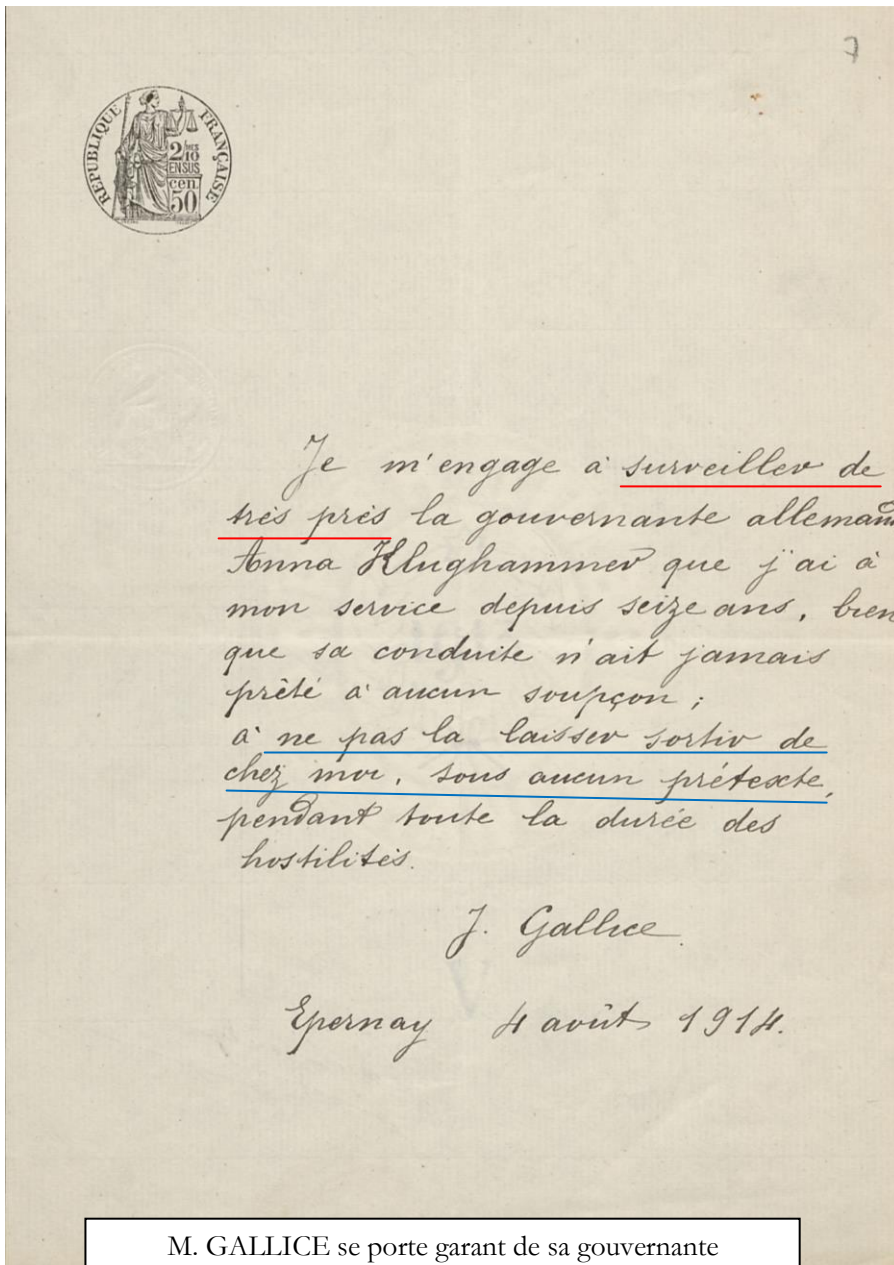 7
REPUBLIQUE FRANÇAISE
2/10 MES
EN SUS
cen.
50
Je m'engage à surveiller de
très près la gouvernante alleman
Anna Klughammer que j'ai à
mon service depuis seize ans, bien
que sa conduite n'ait jamais
prêté à aucun soupçon ;
à ne pas la laisser sortir de
chez moi, sous aucun prétexte,
pendant toute la durée des
hostilités.
J. Gallice
Epernay 4 août 1914.
M. GALLICE se porte garant de sa gouvernante